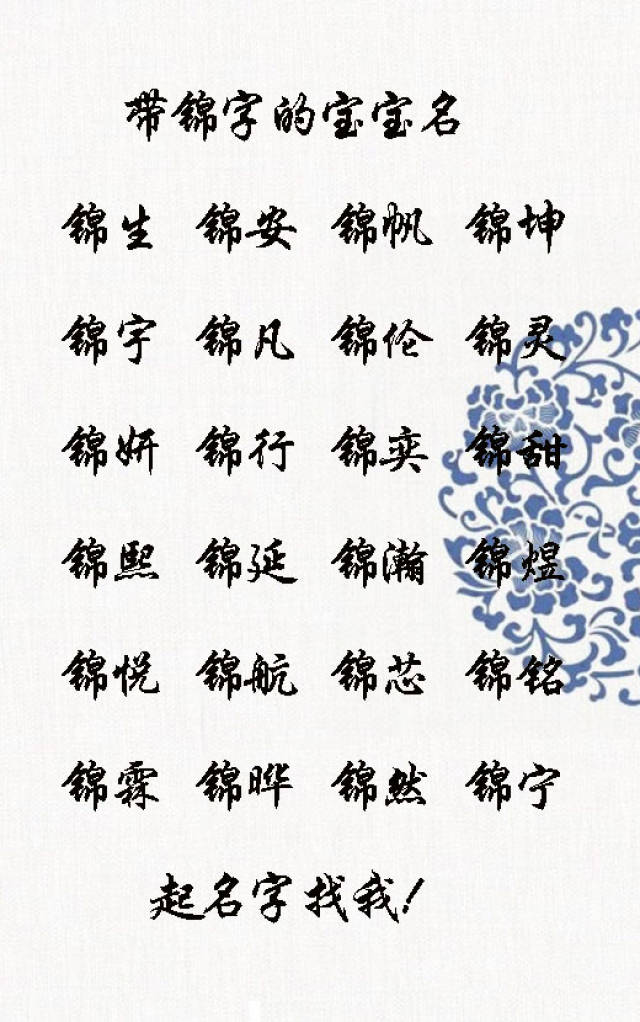 带锦字的宝宝名
锦生 锦安 锦帆 锦坤
锦宇 锦凡 锦伦 锦灵
锦妍 锦行 锦奕 锦甜
锦熙 锦延 锦瀚 锦煜
锦悦 锦航 锦芯 锦铭
锦霖 锦晔 锦然 锦宁
起名字找我!